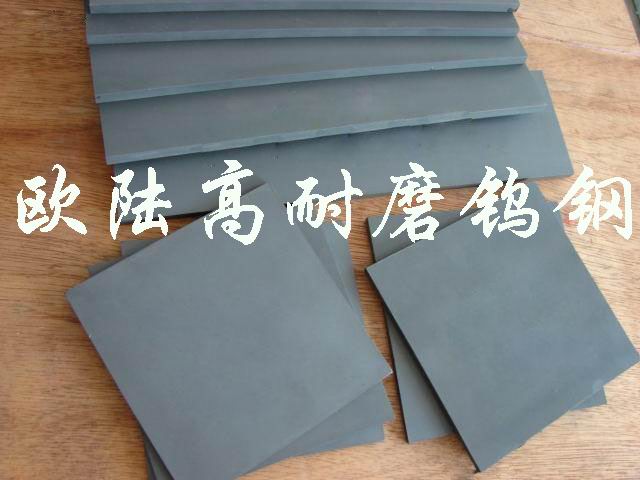 欧陆高耐磨钨钢